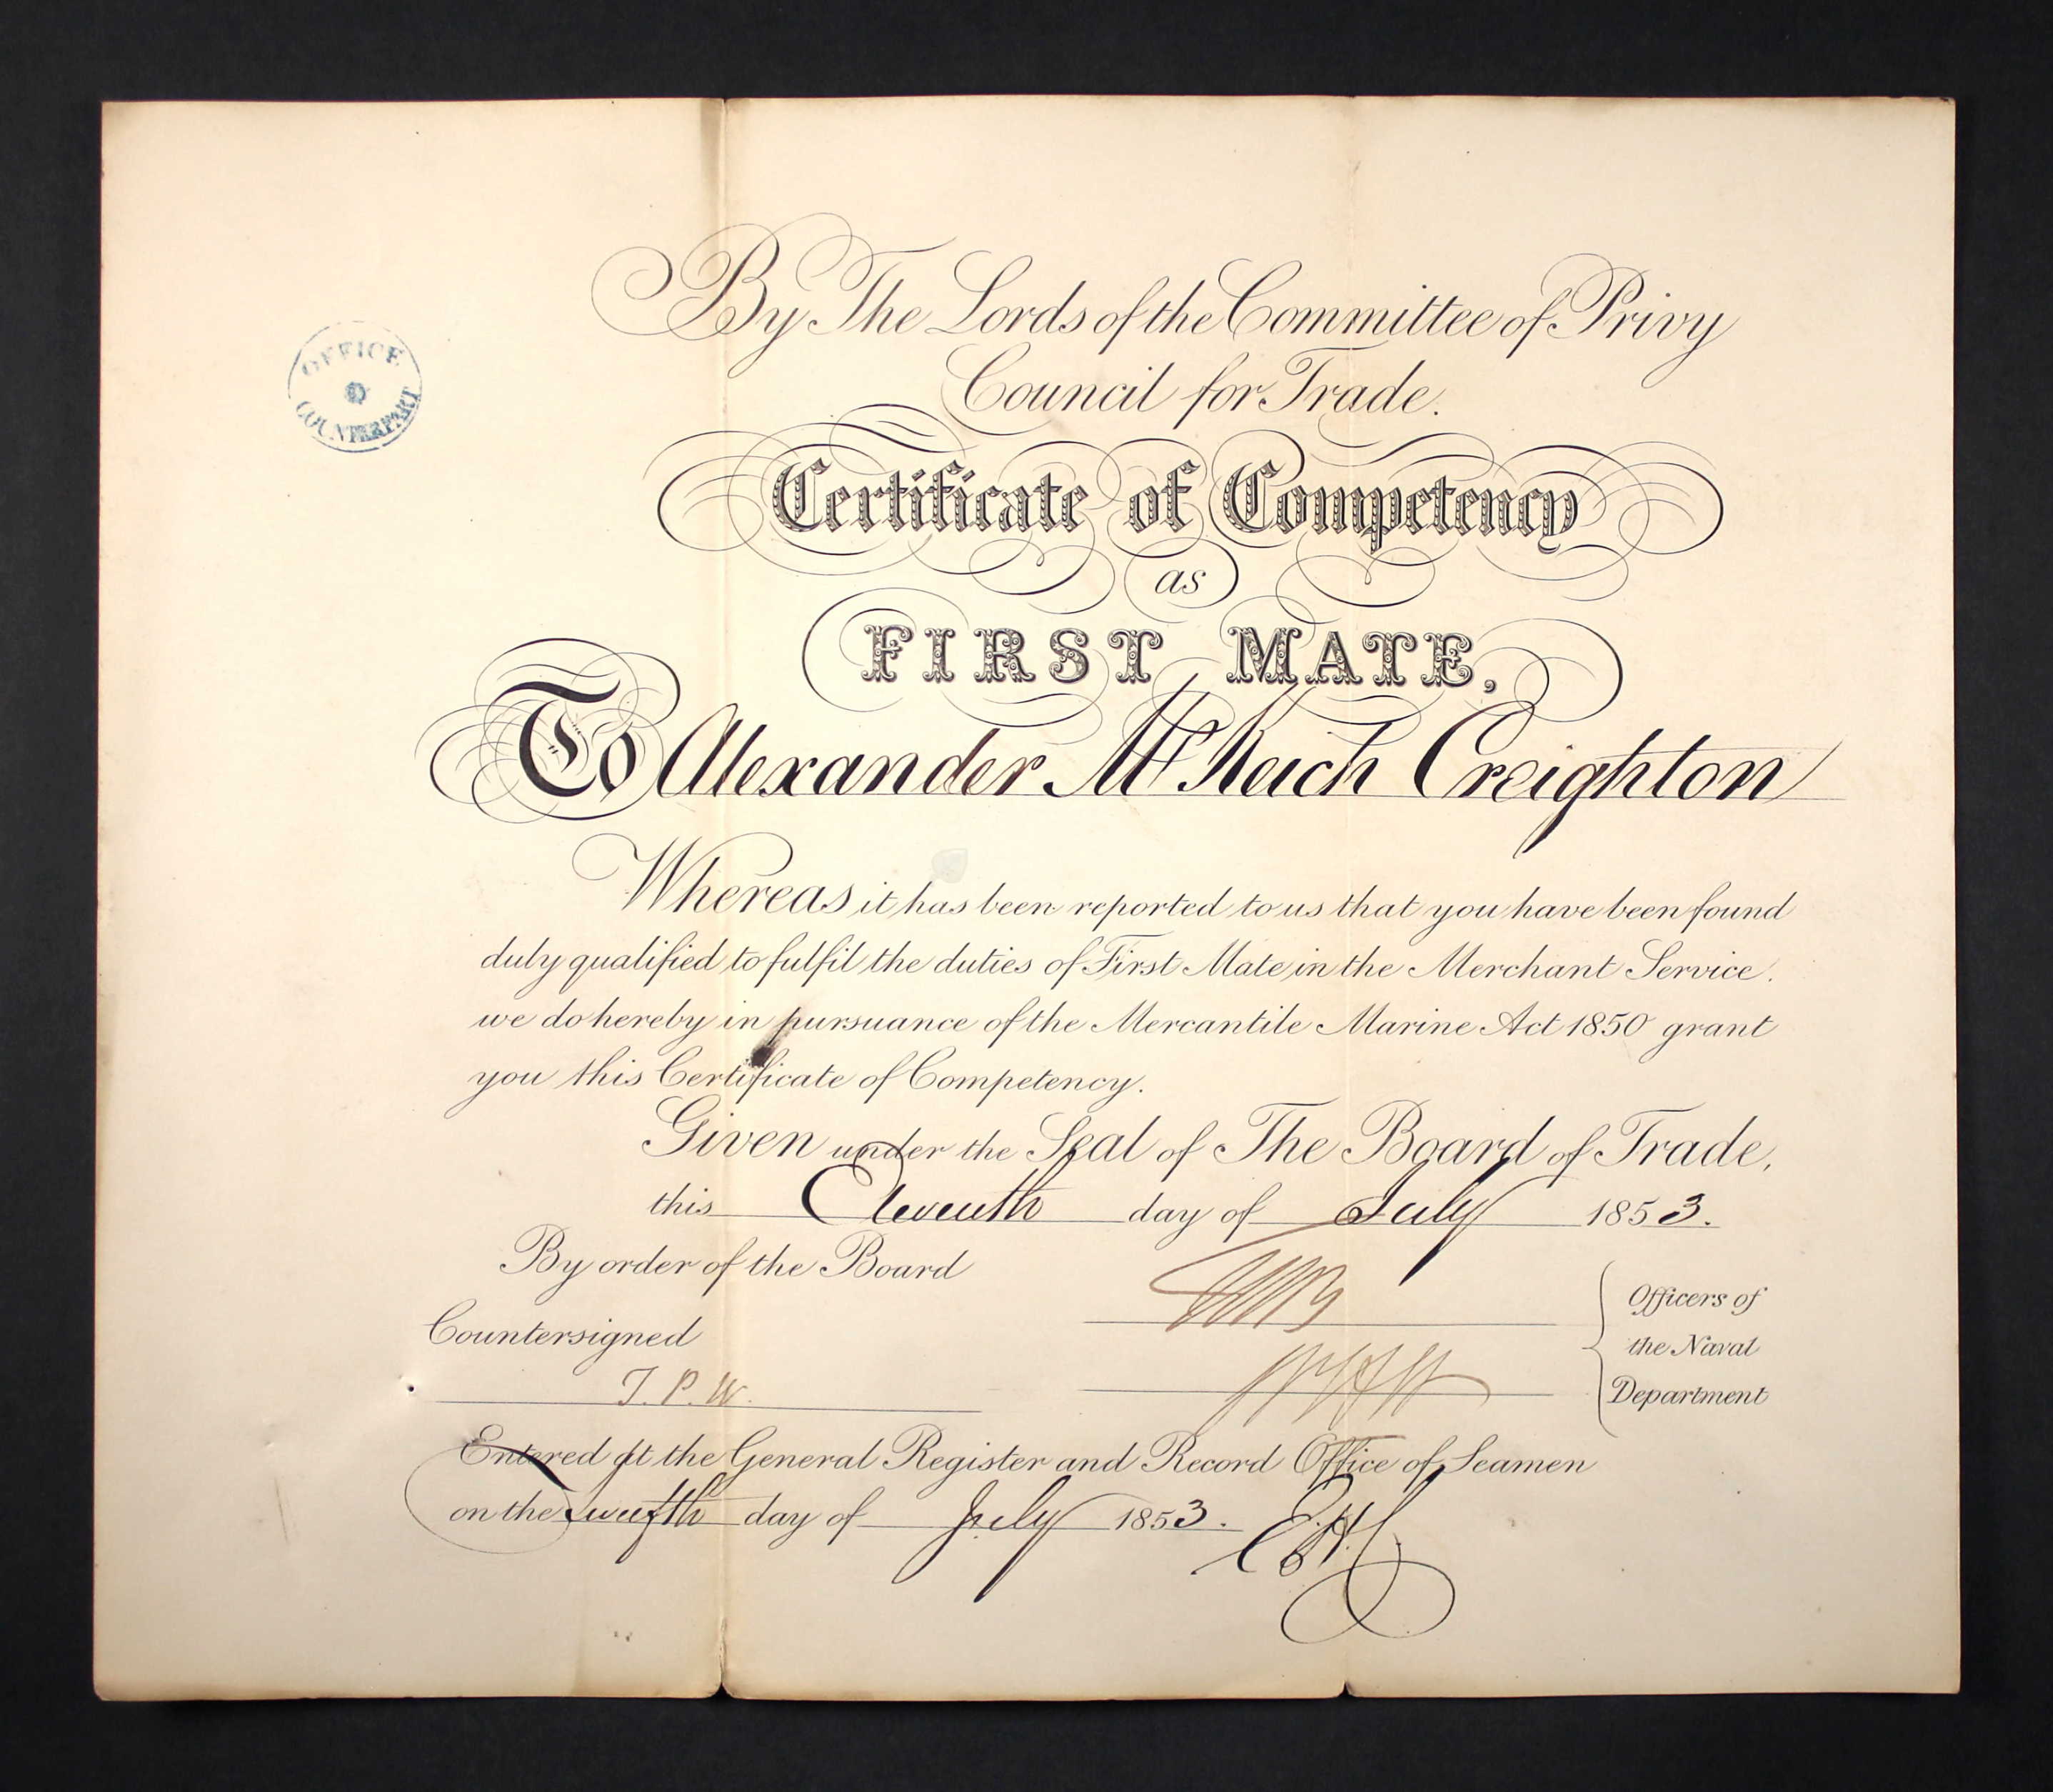 OFFICE COUNTERPART
By The Lords of the Committee of Privy
Council for Trade.
Certificate of Competency
as
FIRST MATE,
To Alexander Mc Keich Creighton
Whereas it has been reported to us that you have been found
duly qualified to fulfil the duties of First Mate in the Merchant Service.
we do hereby in pursuance of the Mercantile Marine Act 1850 grant
you this Certificate of Competency.
Given under the Seal of The Board of Trade,
this Eleventh day of July 1853.
By order of the Board
Officers of
the Naval
Department
Countersigned
T. P. W.
Entered at the General Register and Record Office of Seamen
on the Twelfth day of July 1853.